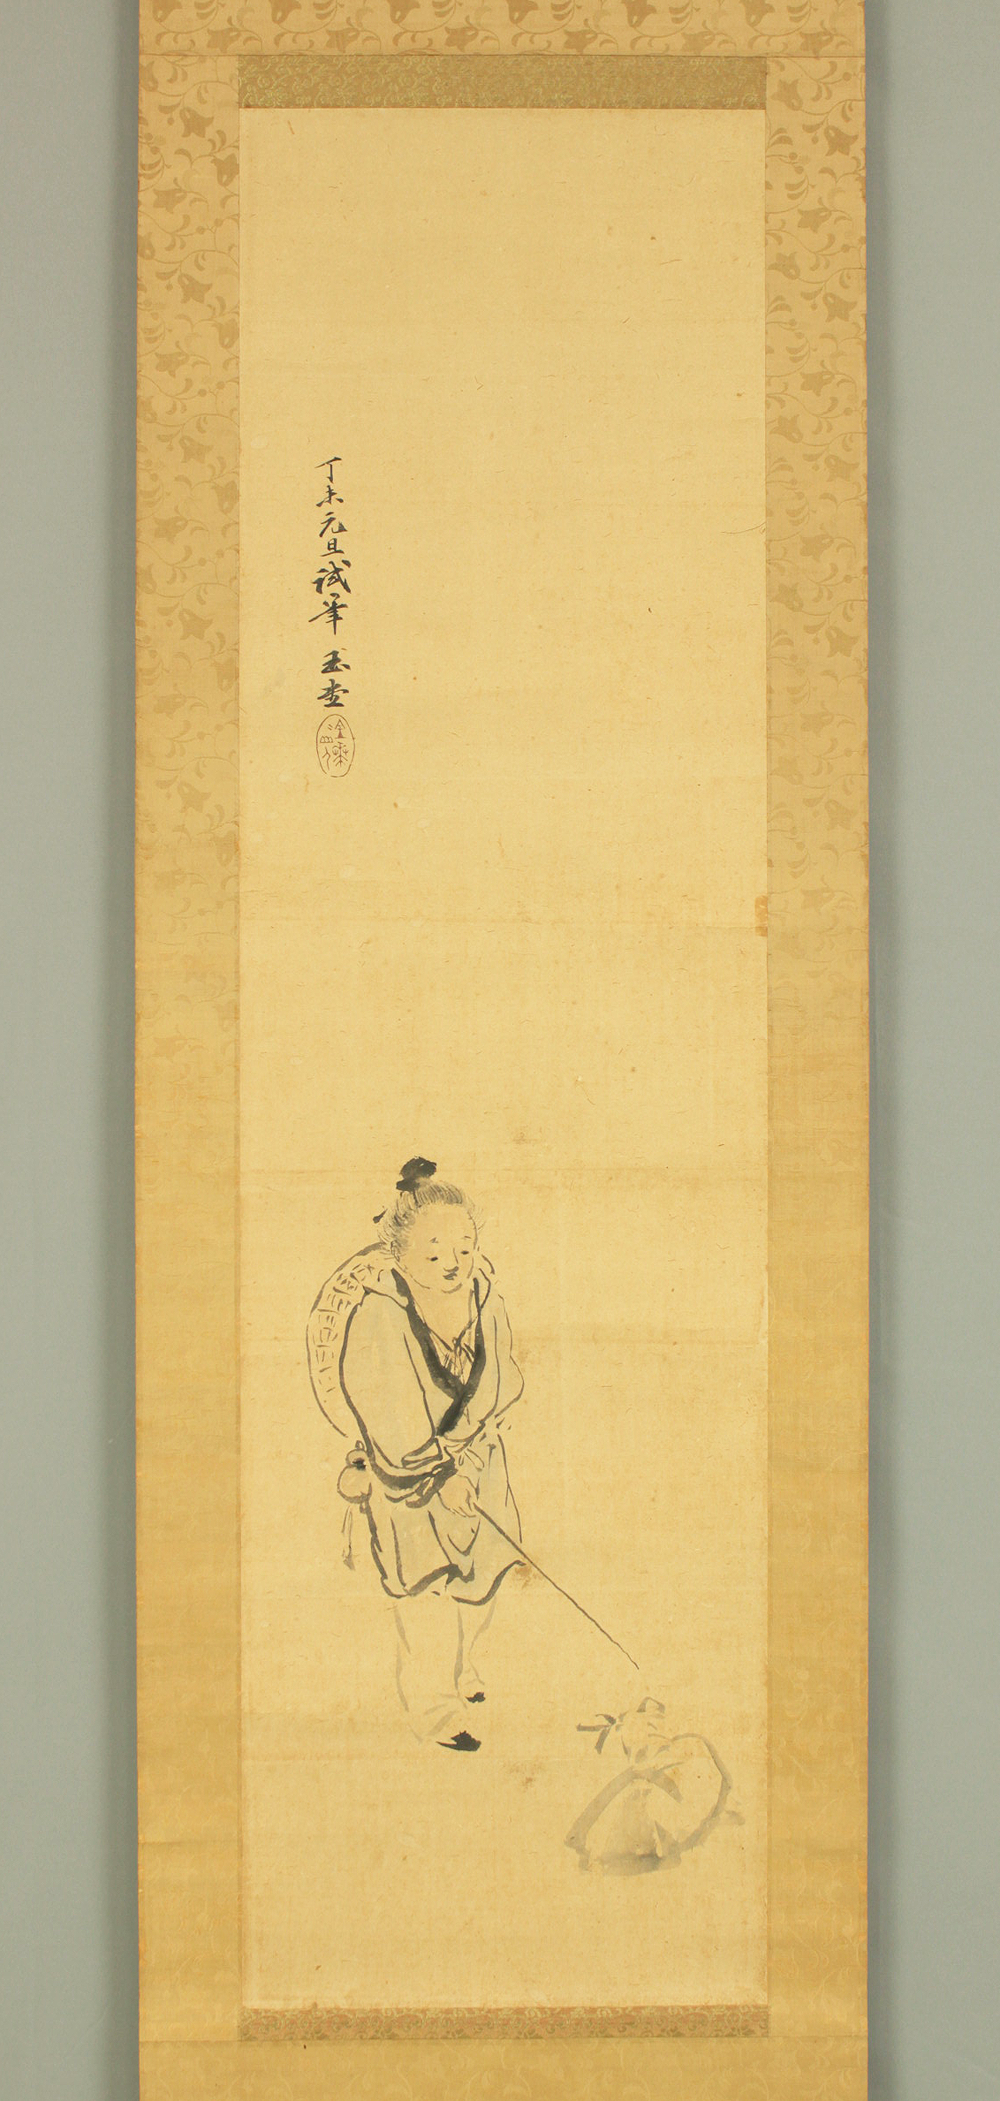 丁未元旦試筆 玉堂